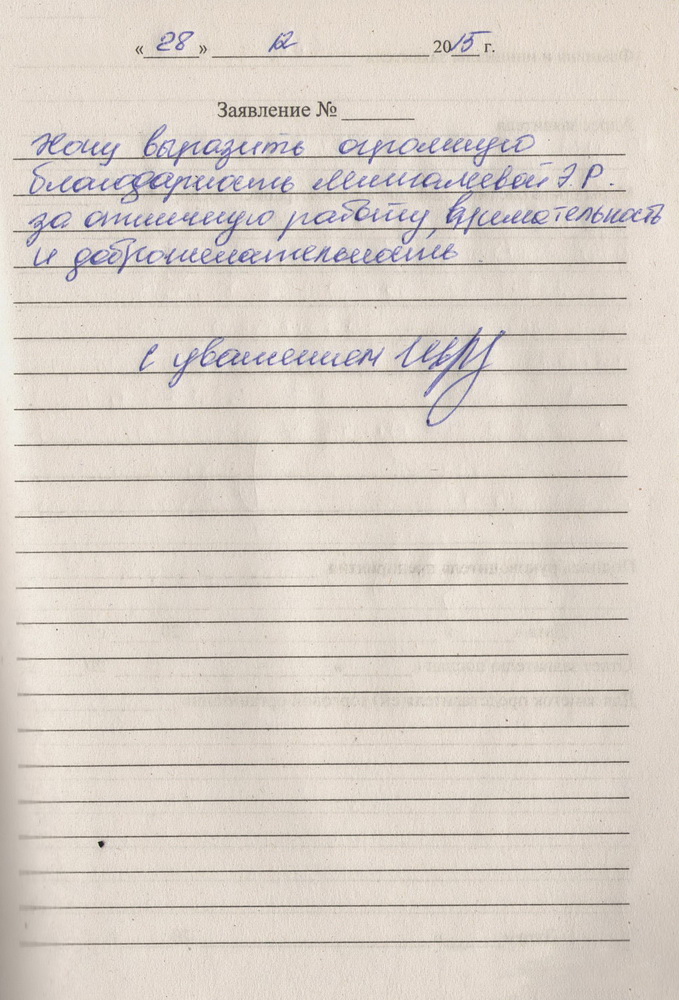 « 28 » 12 2015 г.
Заявление №
Хочу выразить огромную
благодарность Мингалиевой Э.Р.
за отличную работу, внимательность
и доброжелательность
С уважением